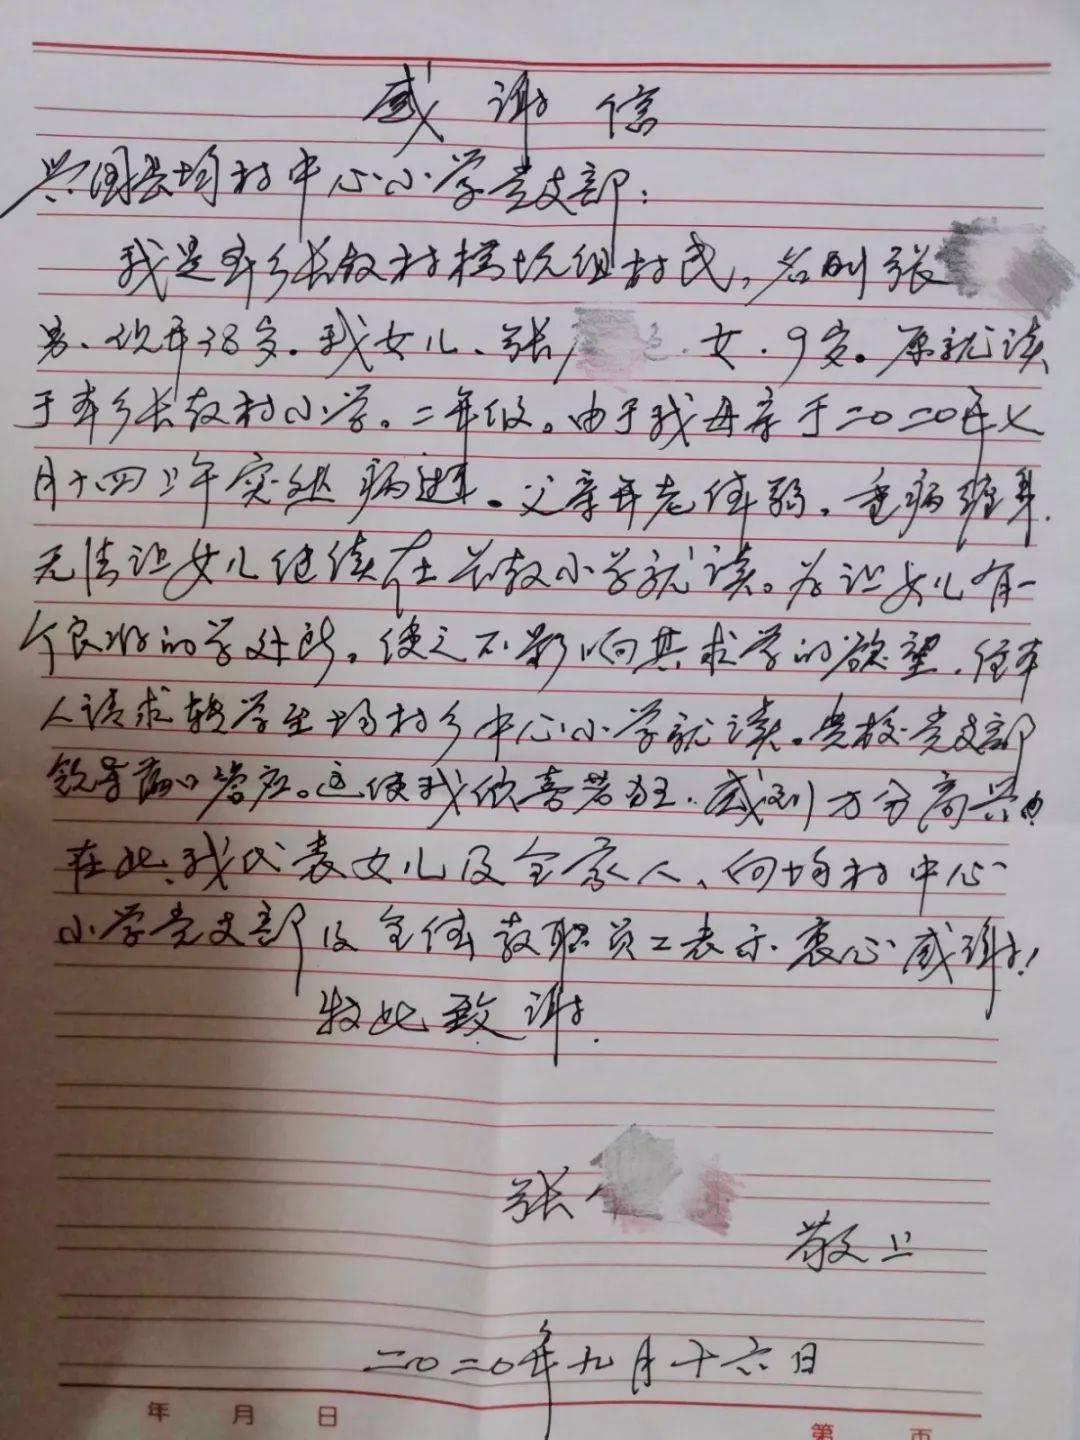 感谢信
兴国县均村中心小学党支部：
我是本乡长教村横坑组村民，名叫张
男、现年38岁。我女儿、张 女.9岁。原就读
于本乡长教村小学。二年级。由于我母亲于二〇二〇年七
月十四上午突然病逝。父亲年老体弱，重病缠身.
无法让女儿继续在长教小学就读。为让女儿有一
个良好的学习场所，使之不影响其求学的欲望，经本
人请求转学至均村乡中心小学就读。贵校党支部
领导满口答应。这使我欣喜若狂.感到万分高兴。
在此,我代表女儿及全家人、向均村中心
小学党支部及全体教职员工表示衷心感谢！
特此致谢.
张
敬上
二〇二〇年九月十六日
年 月 日
第 页